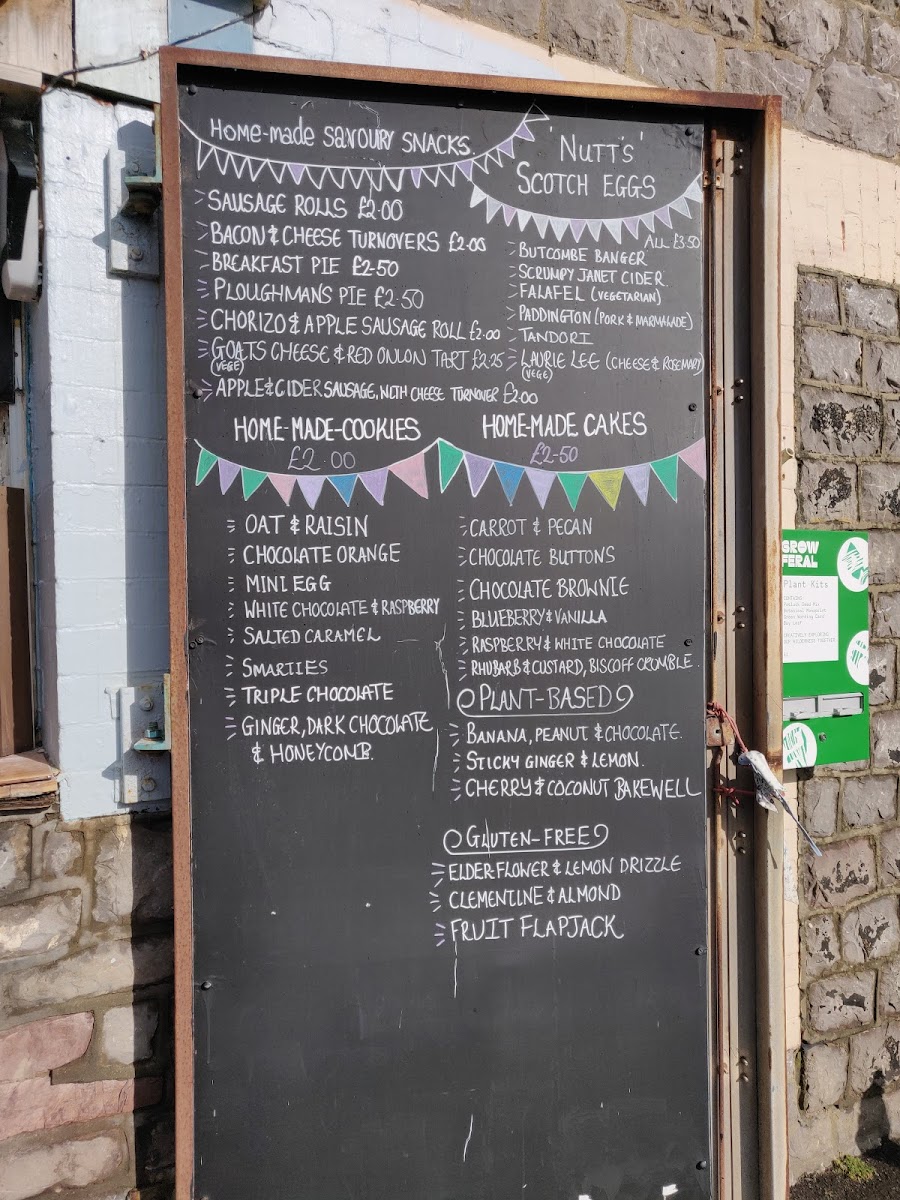 Home-made savoury snacks.
SAUSAGE ROLLS £2.00
BACON & CHEESE TURNOVERS £2.00
BREAKFAST PIE £2-50
PLOUGHMANS PIE £2.50
CHORIZO & APPLE SAUSAGE ROLL £2.00
GOATS CHEESE & RED ONION TART £2.25
(VEGE)
APPLE & CIDER SAUSAGE, WITH CHEESE TURNOVER £2.00
'NUTT'S'
SCOTCH EGGS
ALL £3.50
BUTCOMBE BANGER
SCRUMPY JANET CIDER
FALAFEL (VEGETARIAN)
PADDINGTON (PORK & MARMALADE)
TANDORI
LAURIE LEE (CHEESE & ROSEMARY)
(VEGE)
HOME-MADE-COOKIES
£2.00
OAT & RAISIN
CHOCOLATE ORANGE
MINI EGG
WHITE CHOCOLATE & RASPBERRY
SALTED CARAMEL
SMARTIES
TRIPLE CHOCOLATE
GINGER, DARK CHOCOLATE
& HONEYCOMB.
HOME-MADE CAKES
£2-50
CARROT & PECAN
CHOCOLATE BUTTONS
CHOCOLATE BROWNIE
BLUEBERRY & VANILLA
RASPBERRY & WHITE CHOCOLATE
RHUBARB & CUSTARD, BISCOFF CRUMBLE
PLANT-BASED
BANANA, PEANUT & CHOCOLATE.
STICKY GINGER & LEMON.
CHERRY & COCONUT BAKEWELL
GLUTEN-FREE
ELDERFLOWER & LEMON DRIZZLE
CLEMENTINE & ALMOND
FRUIT FLAPJACK
GROW
FERAL
Plant Kits